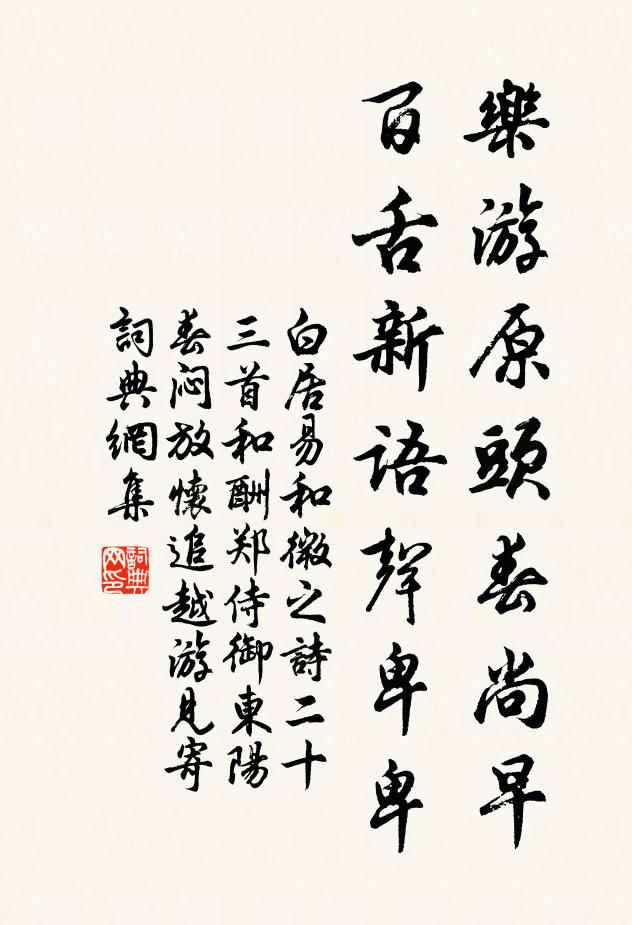 樂游原頭春尚早
百舌新語聲卑卑
白居易和微之詩二十
三首和酬郑侍御東陽
春闷放懷追越游見寄
詞典網集
詞典网印